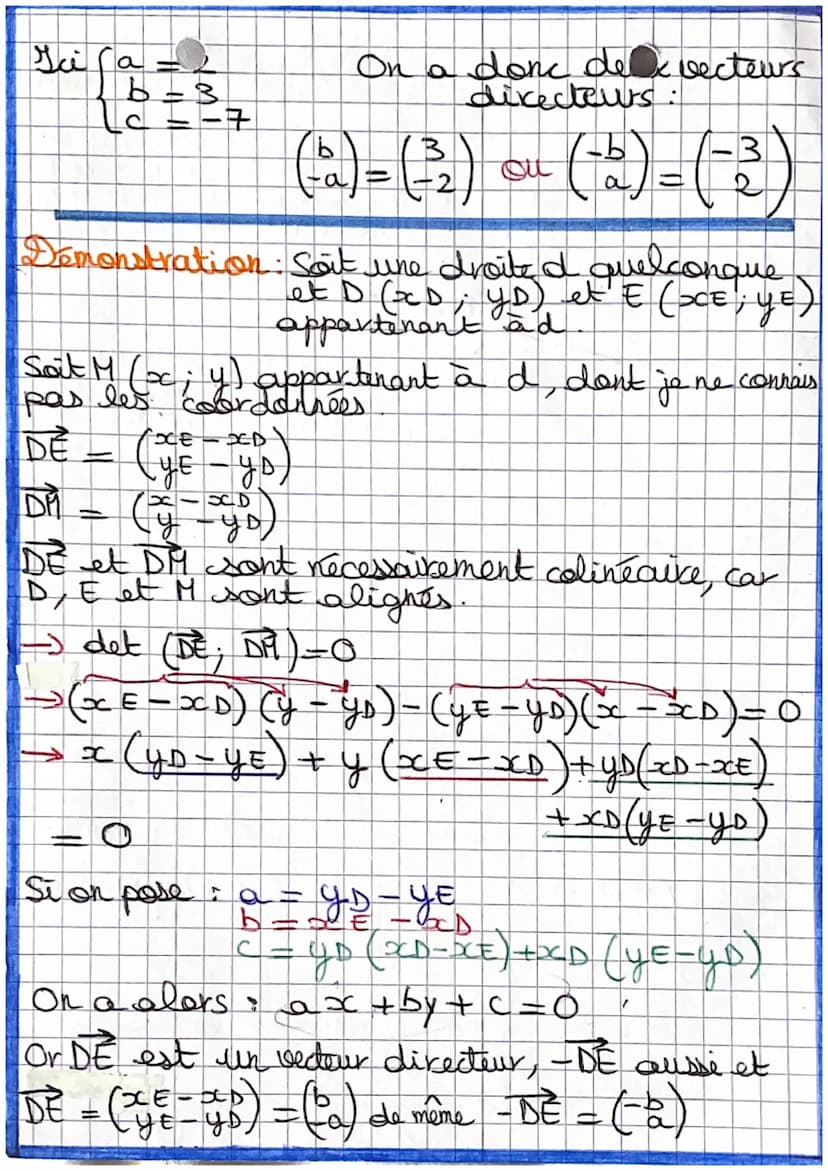 Ici { a = 2
b = 3
c = -7
On a donc deux vecteurs
directeurs :
(b -a) = (3 -2) ou (-b a) = (-3 2)
Démonstration : Soit une droite d quelconque
et D (xD ; yD) et E (xE ; yE)
appartenant à d.
Soit M (x ; y) appartenant à d, dont je ne connais
pas les coordonnées
DE = (xE - xD yE - yD)
DM = (x - xD y - yD)
DE et DM sont nécessairement colinéaire, car
D, E et M sont alignés.
→ det (DE ; DM) = 0
→ (xE - xD) (y - yD) - (yE - yD)(x - xD) = 0
→ x (yD - yE) + y (xE - xD) + yD(xD - xE)
+ xD(yE - yD)
= 0
Si on pose : a = yD - yE
b = xE - xD
c = yD (xD - xE) + xD (yE - yD)
On a alors : ax + by + c = 0
Or DE est un vecteur directeur, -DE aussi et
DE = (xE - xD yE - yD) = (b -a) de même -DE = (-b a)